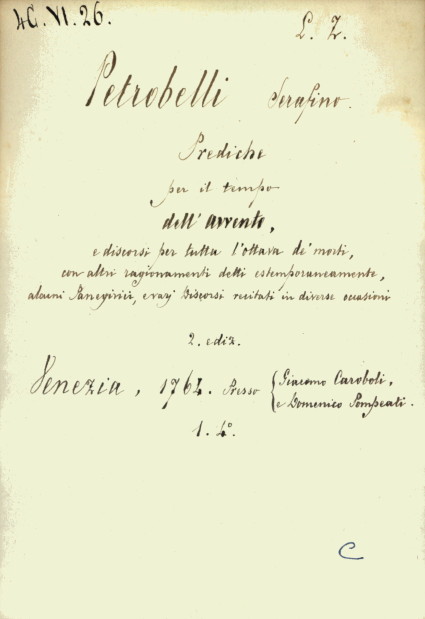 4C.VI.26.
L. Z.
Petrobelli Serafino.
Prediche
per il tempo
dell'avvento,
e discorsi per tutta l'ottava de' morti,
con altri ragionamenti detti estemporaneamente,
alcuni Panegirici, e varj Discorsi recitati in diverse occasioni
2. ediz.
Venezia, 1764. Presso { Giacomo Caroboli,
e Domenico Pompeati.
1. 4°.
C